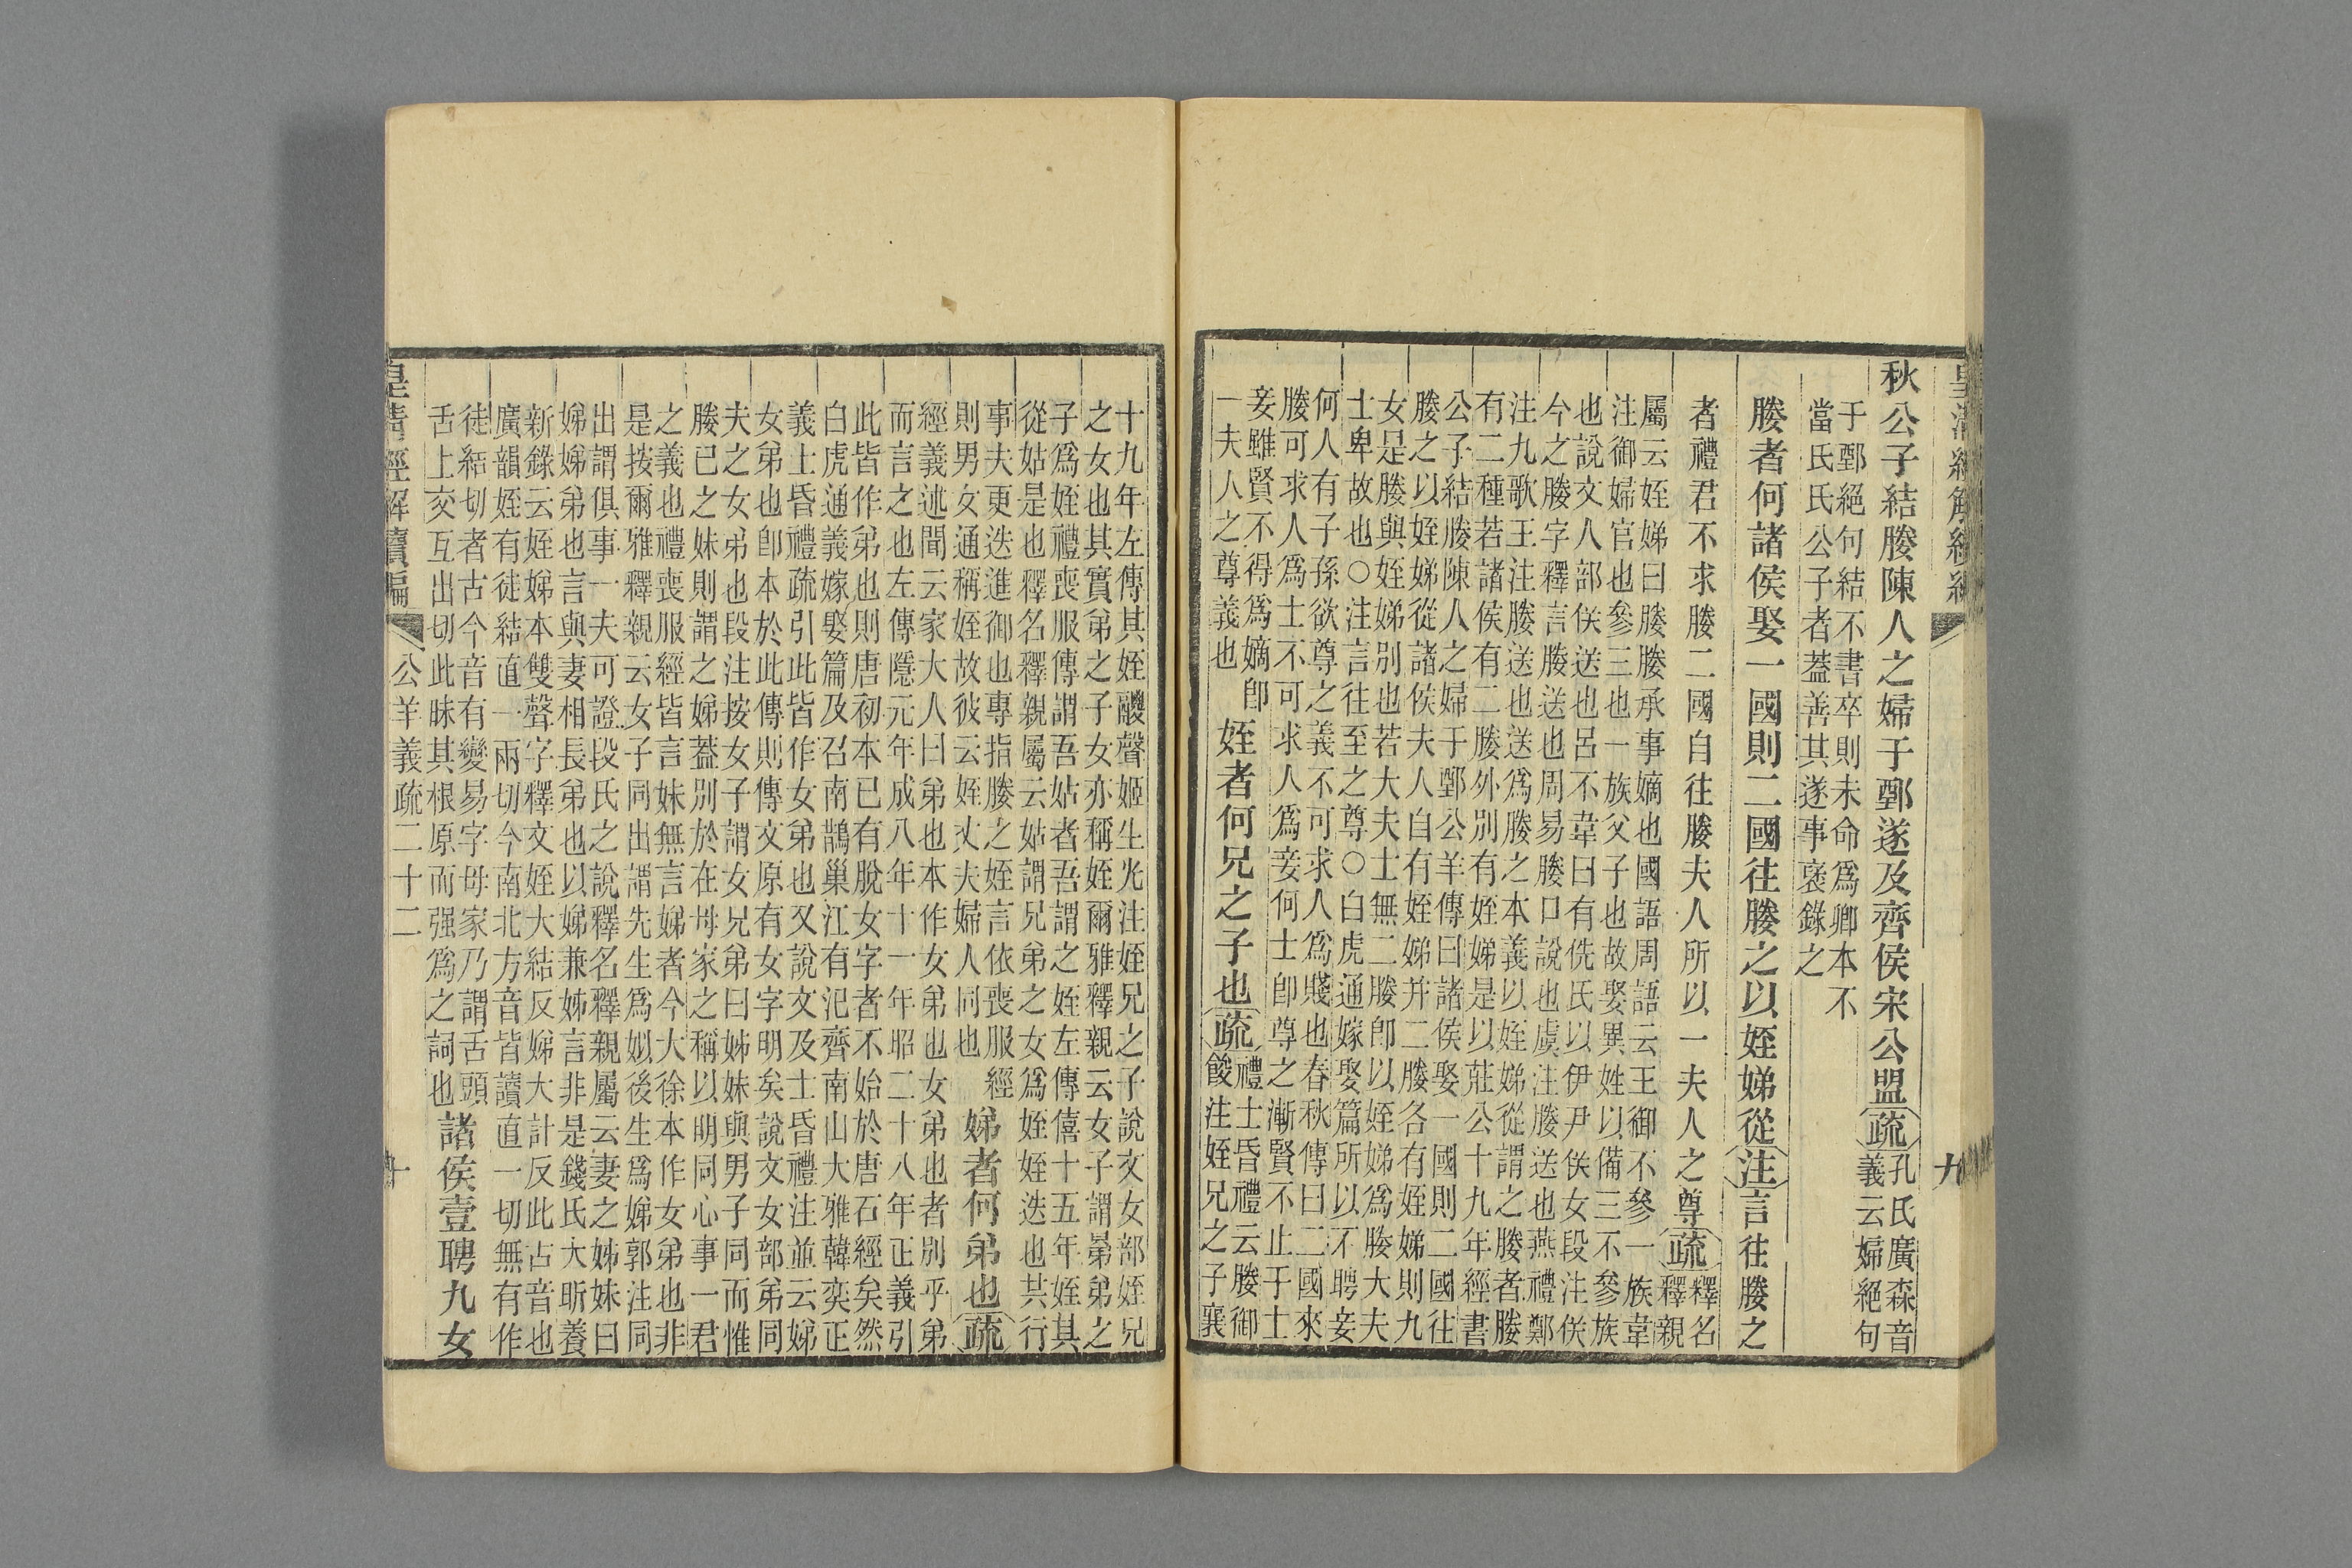 皇清經解續編
九
秋公子結媵陳人之婦于鄄遂及齊侯宋公盟疏孔氏廣森音
義云婦絕句
于鄄絕句結不書卒則未命爲卿本不
當氏氏公子者葢善其遂事襃錄之
媵者何諸侯娶一國則二國往媵之以姪娣從注言往媵之
者禮君不求媵二國自往媵夫人所以一夫人之尊疏釋名
釋親
屬云姪娣曰媵媵承事嫡也國語周語云王御不參一族韋
注御婦官也參三也一族父子也故娶異姓以備三不參族
也說文人部侅送也呂不韋曰有侁氏以伊尹侅女段注侅
今之媵字釋言媵送也周易媵口說也虞注媵送也燕禮鄭
注九歌王注媵送也送爲媵之本義以姪娣從謂之媵者媵
有二種若諸侯有二媵外別有姪娣是以莊公十九年經書
公子結媵陳人之婦于鄄公羊傳曰諸侯娶一國則二國往
媵之以姪娣從諸侯夫人自有姪娣并二媵各有姪娣則九
女是媵與姪娣別也若大夫士無二媵卽以姪娣爲媵大夫
士卑故也○注言往至之尊○白虎通嫁娶篇所以不聘妾
何人有子孫欲尊之義不可求人爲賤也春秋傳曰二國來
媵可求人爲士不可求人爲妾何士卽尊之漸賢不止于士
妾雖賢不得爲嫡卽
一夫人之尊義也
姪者何兄之子也疏禮士昏禮云媵御
餕注姪兄之子襄
十九年左傳其姪鬷聲姬生光注姪兄之子說文女部姪兄
之女也其實弟之子女亦稱姪爾雅釋親云女子謂晜弟之
子爲姪禮喪服傳謂吾姑者吾謂之姪左傳僖十五年姪其
從姑是也釋名釋親屬云姑謂兄弟之女爲姪姪迭也共行
事夫更迭進御也專指媵之姪言依喪服經
則男女通稱姪故彼云姪丈夫婦人同也
娣者何弟也疏
經義述聞云家大人曰弟也本作女弟也女弟也者別乎弟
而言之也左傳隱元年成八年十一年昭二十八年正義引
此皆作弟也則唐初本已有脫女字者不始於唐石經矣然
白虎通義嫁娶篇及召南鵲巢江有汜齊南山大雅韓奕正
義士昏禮疏引此皆作女弟也又說文及士昏禮注並云娣
女弟也卽本於此傳則傳文原有女字明矣說文女部弟同
夫之女弟也段注按女子謂女兄弟曰姊妹與男子同而惟
媵已之妹則謂之娣葢別於在母家之稱以明同心事一君
之義也禮喪服經皆言妹無言娣者今大徐本作女弟也非
是按爾雅釋親云女子同出謂先生爲姒後生爲娣郭注同
出謂俱事一夫可證段氏之說釋名釋親屬云妻之姊妹曰
娣娣弟也言與妻相長弟也以娣兼姊言非是錢氏大昕養
新錄云姪娣本雙聲字釋文姪大結反娣大計反此古音也
廣韻姪有徒結直一兩切今南北方音皆讀直一切無有作
徒結切者古今音有變易字母家乃謂舌頭
舌上交互出切此昧其根原而强爲之詞也
諸侯壹聘九女
皇清經解續編
公羊義疏二十二
十